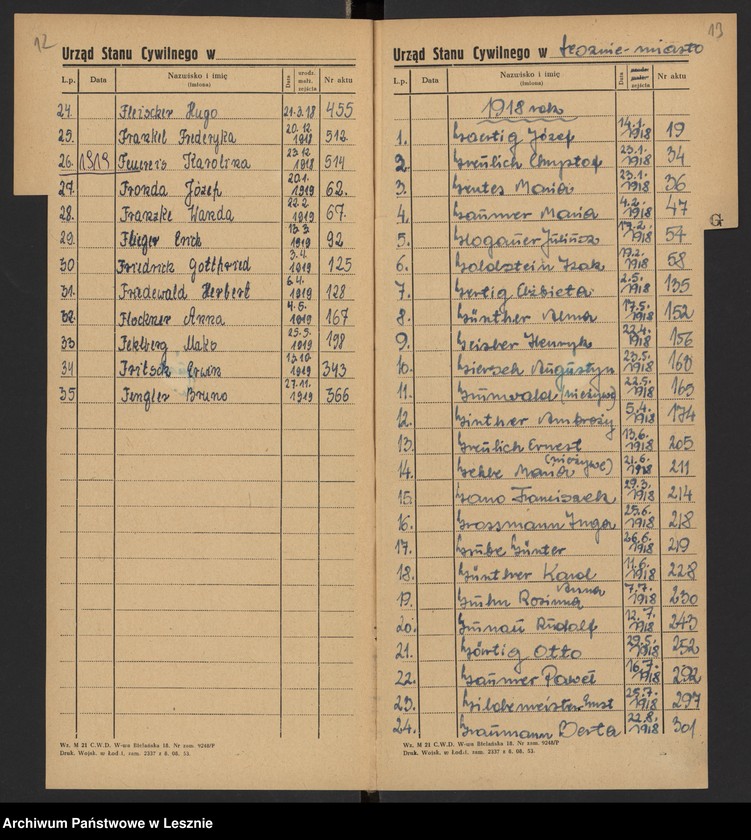 12
Urząd Stanu Cywilnego w
L.p. Data Nazwisko i imię (imiona) Data urodz. małż. zejścia Nr aktu
24. Fleischer Hugo 21.3.18 455
25. Frankel Fryderyka 20.12. 1918 512
26. 1919 Karolina 23.12 1918 514
27. Fronda Józef 20.1. 1919 62.
28. Franzke Wanda 22.2. 1919 67.
29. Flieger Erick 13.3. 1919 92
30 Friedrick Gottfried 3.4. 1919 125
31. Friedewald Herbert 6.4. 1919 128
32. Flockner Anna 4.5. 1919 167
33 Fehlberg 25.5. 1919 198
34 Fritsch Erwin 13.10. 1919 343
35 Fengler Bruno 27.11. 1919 366
Wz. M 21 C.W.D. W-wa Bielańska 18. Nr zam. 9248/P
Druk. Wojsk. w Łodzi. zam. 2337 z 8. 08. 53.
13
Urząd Stanu Cywilnego w Leszno-miasto
L.p. Data Nazwisko i imię (imiona) Data urodz. małż. zejścia Nr aktu
1918 rok
1. Gaertig Józef 14.1. 1918 19
2. Greulich Chrystof 23.1. 1918 34
3. Gentes Maria 23.1. 1918 36
4. Gaumer Maria 4.2. 1918 47
5. Glogauer Juliusz 1918 54
6. Goldsztein Izak 19.2. 1918 58
7. Gertig Elżbieta 2.5. 1918 135
8. Günther Alma 17.5. 1918 152
9. Geisler Henryk 22.4. 1918 156
10. Giersch Augustyn 23.5. 1918 160
11. Grunwald (nieżywe) 22.5. 1918 165
12. Ginther Ambroży 5.4. 1918 174
13. Greulich Ernest 13.6. 1918 205
14. Maria (nieżywe) 21.6. 1918 211
15. Franciszek 29.3. 1918 214
16. Grossmann Inga 25.6. 1918 218
17. Grube Günter 26.6. 1918 219
18. Günther Karol 11.6. 1918 228
19. Guhn Rosina Anna 7.7. 1918 230
20. Gunau Rudolf 12.7. 1918 243
21. Görtig Otto 29.5. 1918 252
22. Gaumer Paweł 16.7. 1918 292
23. Gildemeister Ernst 25.7. 1918 297
24. Graumann Berta 22.8. 1918 301
G
Wz. M 21 C.W.D. W-wa Bielańska 18. Nr zam. 9248/P
Druk. Wojsk. w Łodzi. zam. 2337 z 8. 08. 53.
Archiwum Państwowe w Lesznie